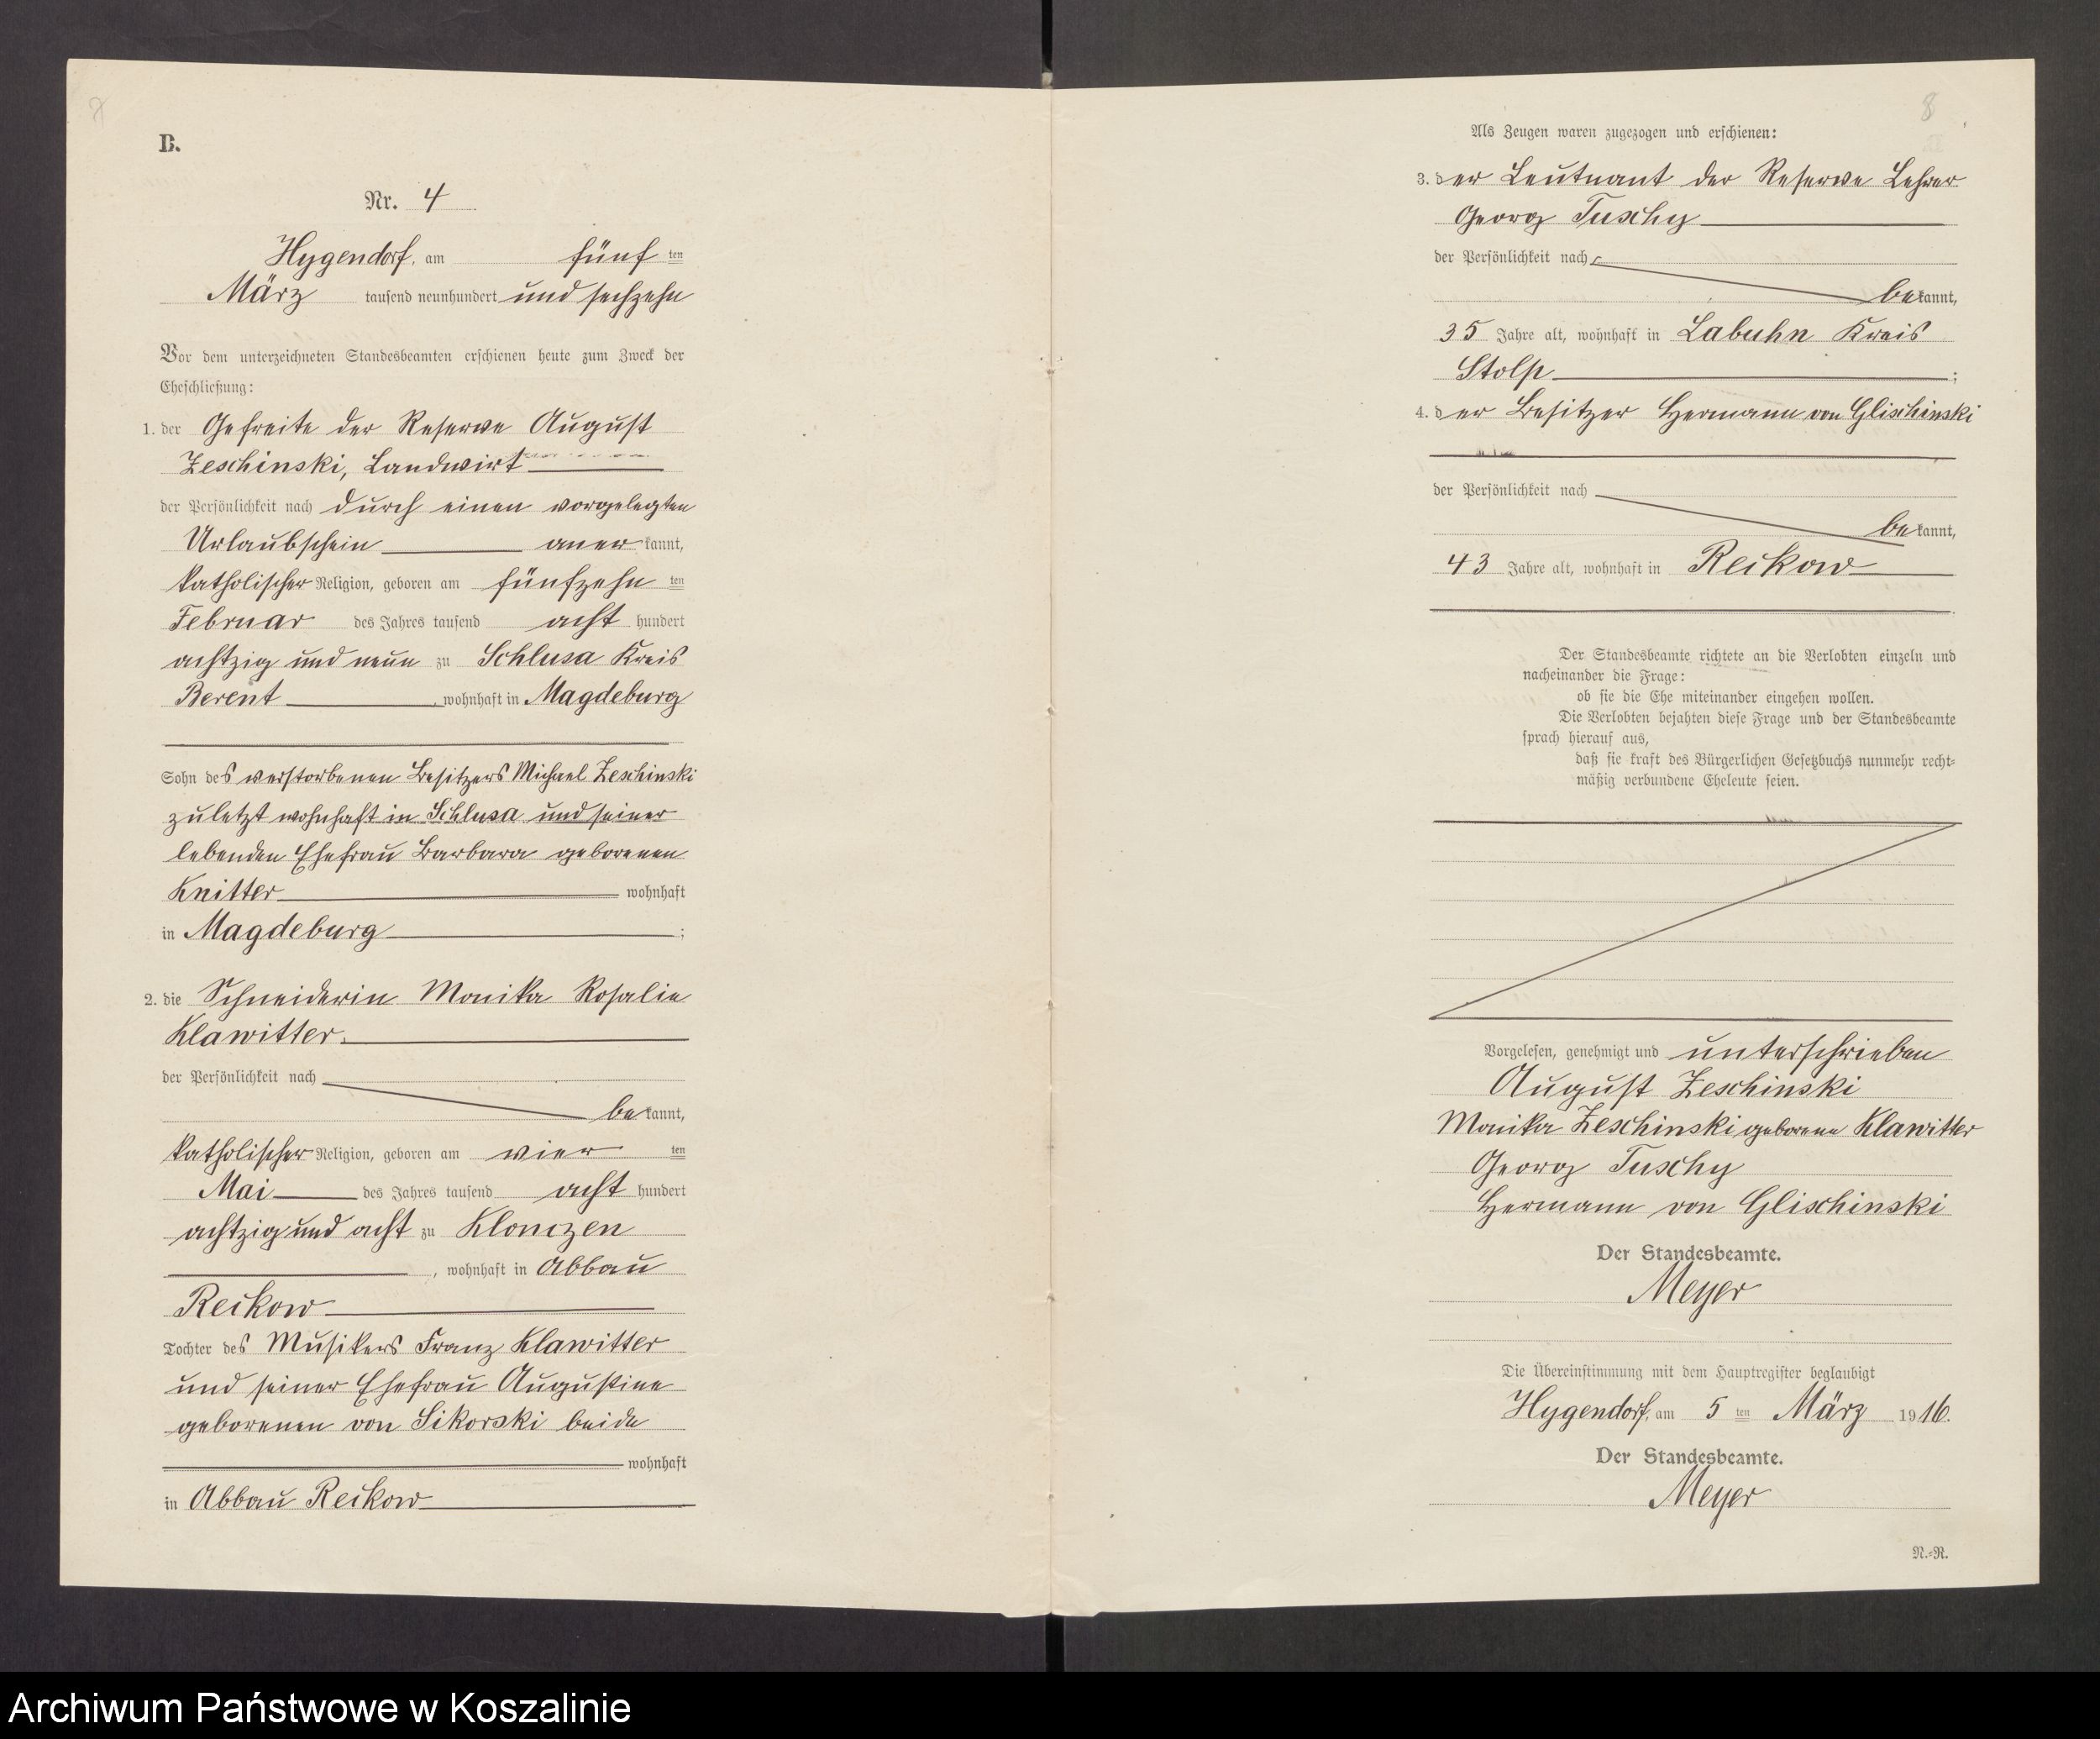 8
B.
Nr. 4
Hygendorf, am fünf ten
März tausend neunhundert und sechzehn
Vor dem unterzeichneten Standesbeamten erschienen heute zum Zweck der
Eheschließung:
1. der Gefreite der Reserve August
Zeschinski, Landwirt
der Persönlichkeit nach durch einen vorgelegten
Urlaubschein anerkannt,
katholischer Religion, geboren am fünfzehn ten
Februar des Jahres tausend acht hundert
achtzig und neun zu Schlusa Kreis
Berent, wohnhaft in Magdeburg
Sohn des verstorbenen Besitzers Michael Zeschinski
zuletzt wohnhaft in Schlusa und seiner
lebenden Ehefrau Barbara geborenen
Knitter wohnhaft
in Magdeburg ;
2. die Schneiderin Monika Rosalie
Klawitter.
der Persönlichkeit nach
bekannt,
katholischer Religion, geboren am vier ten
Mai des Jahres tausend acht hundert
achtzig und acht zu Klonczen
, wohnhaft in Abbau
Reckow
Tochter des Musikers Franz Klawitter
und seiner Ehefrau Augustine
geborenen von Sikorski beide
wohnhaft
in Abbau Reckow
8
Als Zeugen waren zugezogen und erschienen:
3. der Leutnant der Reserve Lehrer
Georg Tuschy
der Persönlichkeit nach
bekannt,
35 Jahre alt, wohnhaft in Labuhn Kreis
Stolp ;
4. der Besitzer Hermann von Glischinski
der Persönlichkeit nach
bekannt,
43 Jahre alt, wohnhaft in Reckow
Der Standesbeamte richtete an die Verlobten einzeln und
nacheinander die Frage:
ob sie die Ehe miteinander eingehen wollen.
Die Verlobten bejahten diese Frage und der Standesbeamte
sprach hierauf aus,
daß sie kraft des Bürgerlichen Gesetzbuchs nunmehr recht-
mäßig verbundene Eheleute seien.
Vorgelesen, genehmigt und unterschrieben
August Zeschinski
Monika Zeschinski geborene Klawitter
Georg Tuschy
Hermann von Glischinski
Der Standesbeamte.
Meyer
Die Übereinstimmung mit dem Hauptregister beglaubigt
Hygendorf, am 5 ten März 1916.
Der Standesbeamte.
Meyer
N.-R.
Archiwum Państwowe w Koszalinie